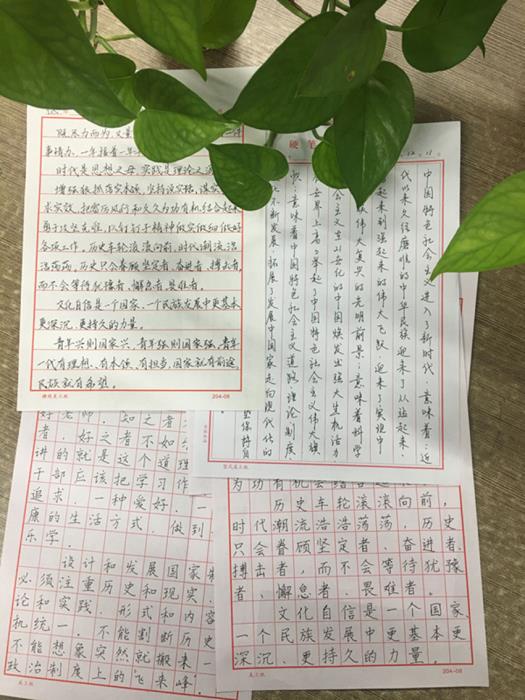 既尽力而为,又量
事情办,一年接着一年
时代是思想之母,实践是理论之源
增强狠抓落实本领,坚持说实话、谋实
求实效,把雷厉风行和久久为功有机结合起来
勇于攻坚克难,以钉钉子精神做实做细做好
各项工作。历史车轮滚滚向前,时代潮流浩
浩荡荡。历史只会眷顾坚定者、奋进者、搏击者,
而不会等待犹豫者、懈怠者、畏难者。
文化自信是一个国家、一个民族发展中更基本
更深沉、更持久的力量。
青年兴则国家兴,青年强则国家强。青年
一代有理想、有本领、有担当,国家就有前途,
民族就有希望。
204-08
硬笔
12.11.
中国特色社会主义进入了新时代,意味着:近
代以来久经磨难的中华民族迎来了从站起来、
起来到强起来的伟大飞跃,迎来了实现中
族伟大复兴的光明前景;意味着科学
会主义在21世纪的中国焕发出强大生机活力
在世界上高高举起了中国特色社会主义伟大旗
帜;意味着中国特色社会主义道路、理论、制度、
化不断发展,拓展了发展中国家走向现代化的
好老师,知之者
者,好之者不如乐
讲的就是这个道理
干部应该把学习作
追求、一种爱好、一
康的生活方式,做到
乐学
设计和发展国家
必须注重历史和现实、
论和实践、形式和内容
机统一。不能割断历史
不能想象突然就搬来
政治制度上的“飞来峰”。
为功有机会结合起
历史车轮滚滚向前,
时代潮流浩浩荡荡,历史
只会眷顾坚定者、奋进者、
搏击者,而不会等待犹豫
者、懈怠者、畏难者。
文化自信是一个国家、
一个民族发展中更基本更
深沉、更持久的力量。
204-08